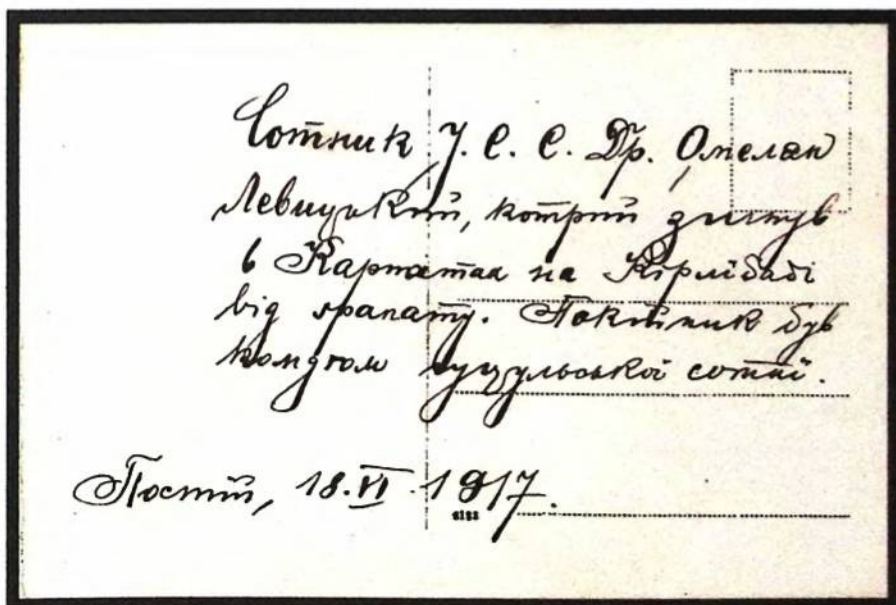 Сотник У. С. С. Др. Омелян
Левицький, котрий згинув
в Карпатах на Кірлібабі
від гранату. Покійник був
комдтом гуцульської сотні.
Постій, 18. VI. 1917.